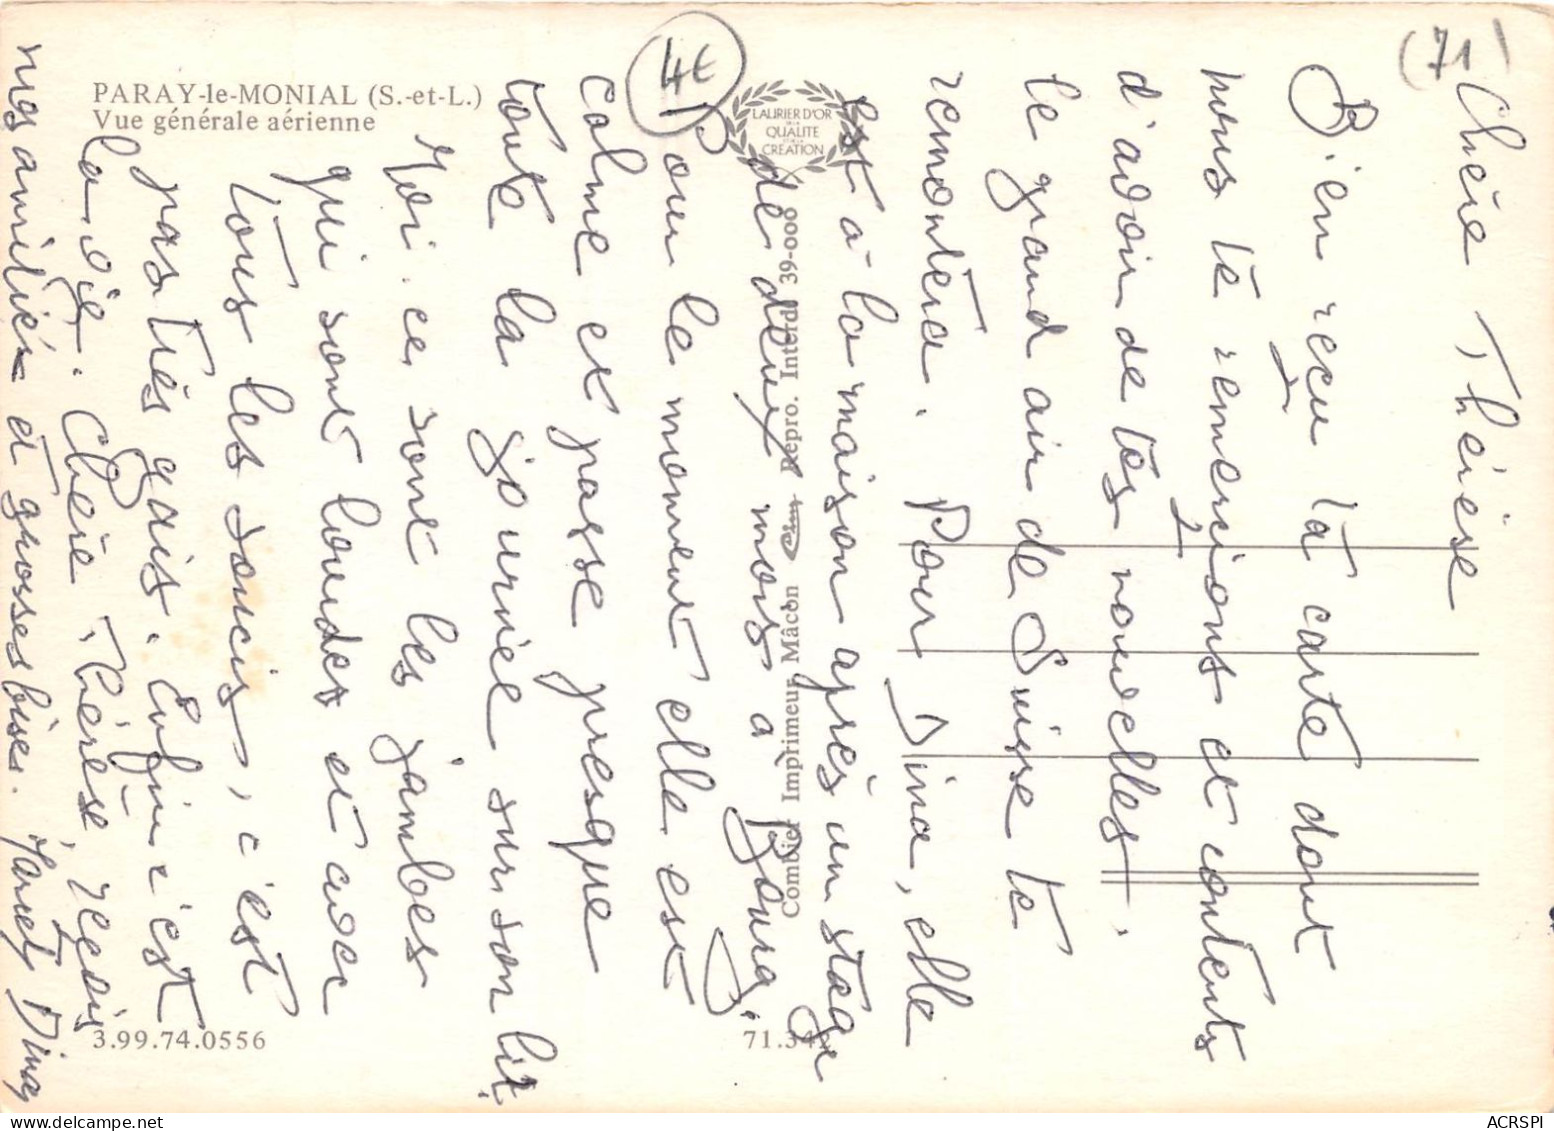 PARAY-le-MONIAL (S.-et-L.)
Vue générale aérienne
4€
(71)
LAURIER D'OR
DE LA
QUALITE
ET DE LA
CREATION
Chère Thérèse
Bien reçu ta carte dont
nous te remercions et contents
d'avoir de tes nouvelles.
le grand air de Suisse te
remontera. Pour Dina, elle
est à la maison après un stage
de deux mois à Bourg.
Pour le moment elle est
calme et passe presque
toute la journée sur son lit.
Moi ce sont les jambes
qui sont lourdes et avec
tous les soucis, c'est
pas très gais. Enfin c'est
la vie. Chère Thérèse, reçois
nos amitiés et grosses bises. Dina
Combier Imprimeur Mâcon Cim Répro. Interdi 39-000
3.99.74.0556